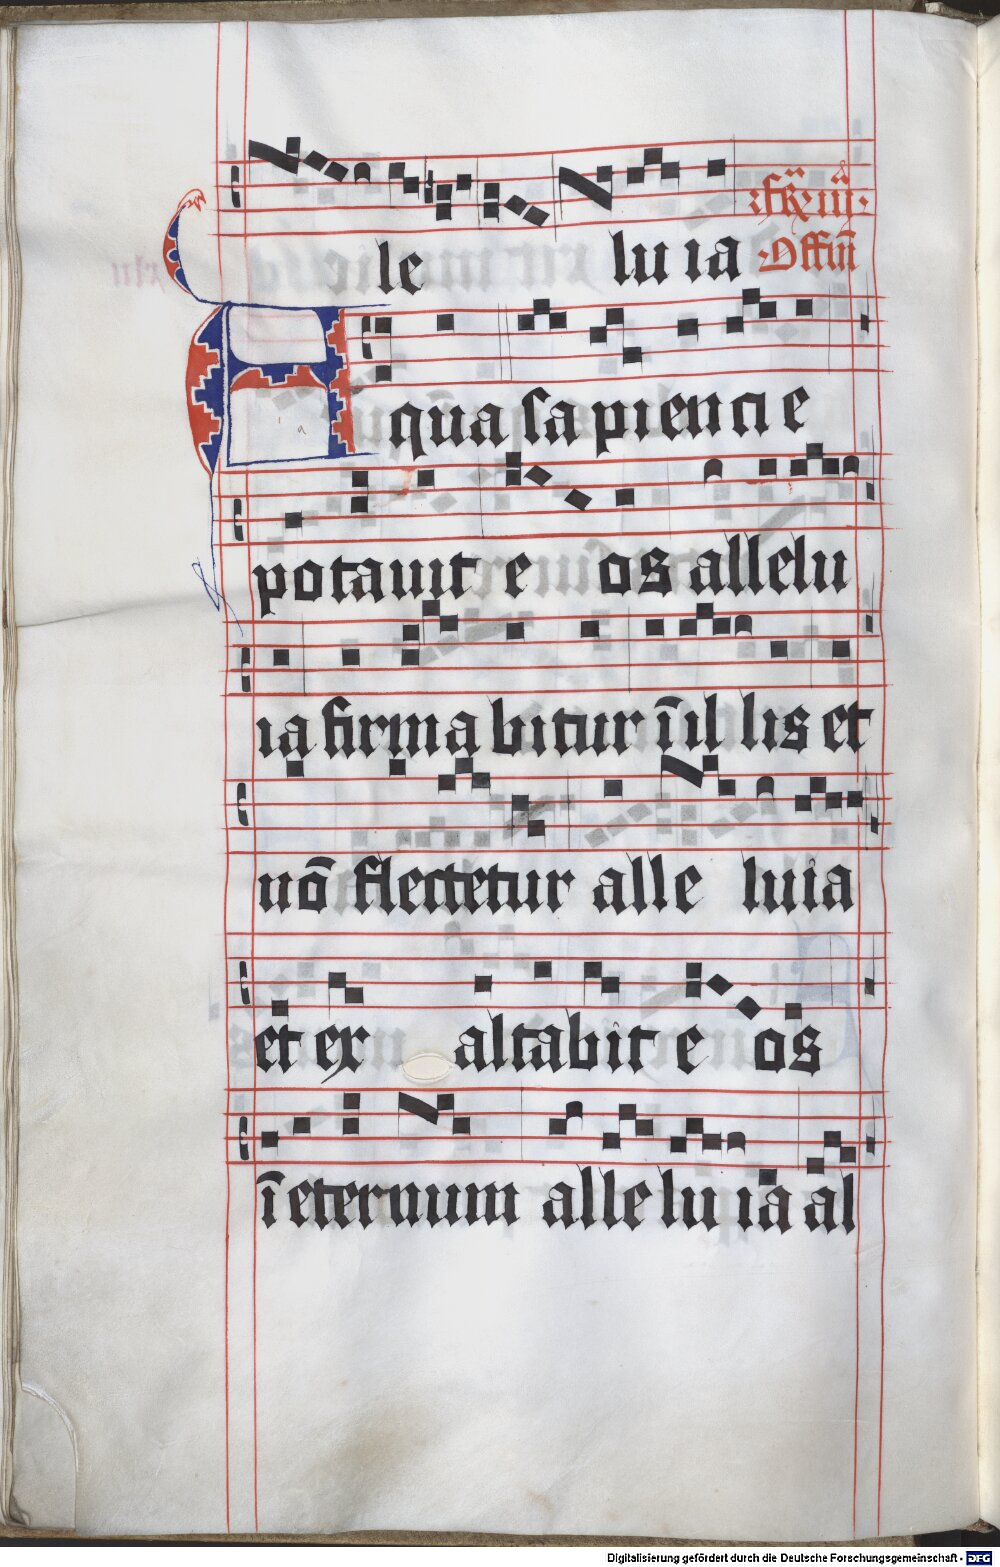 le lu ia ·Fr̄ iii·
·Offiñ
A qua sapiencie
potauit e os allelu
ia firma bitur ī il lis et
nō flectetur alle luia
et ex altabit e os
ī eternum alle lu ia al
Digitalisierung gefördert durch die Deutsche Forschungsgemeinschaft - DFG